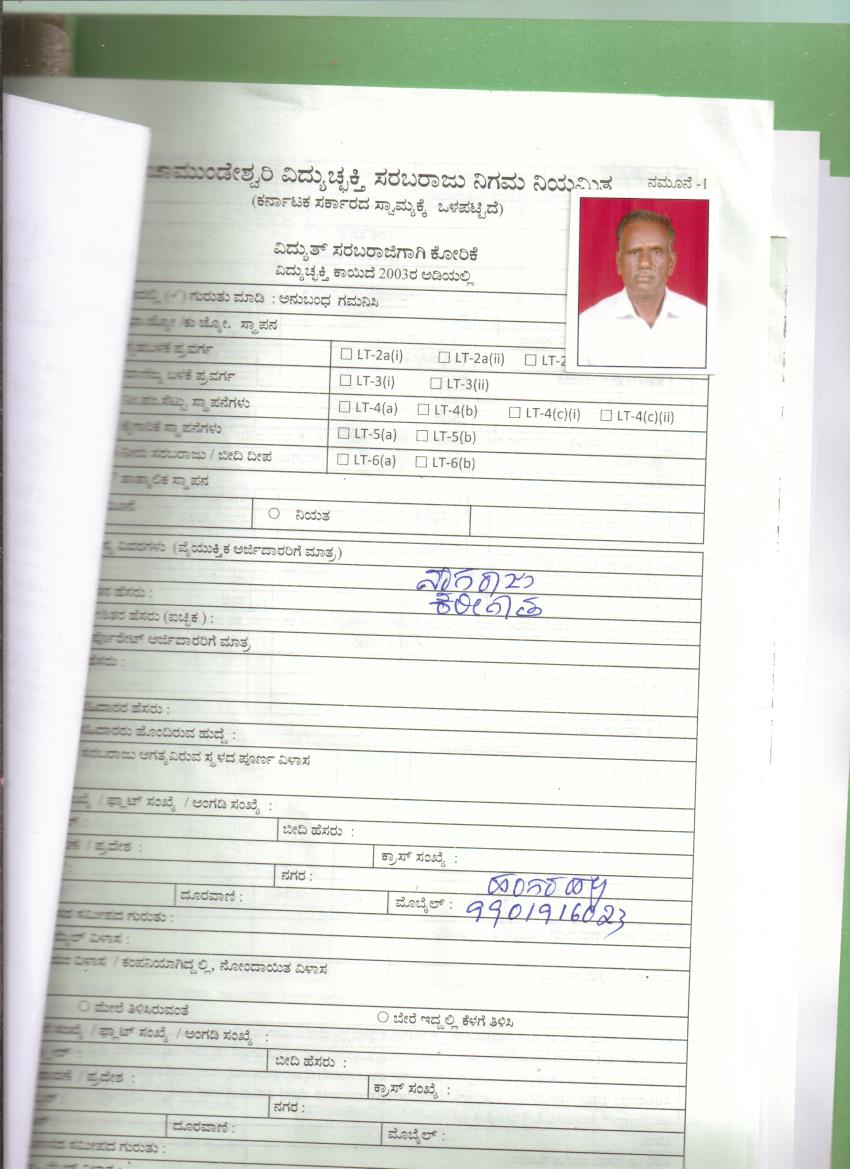 ಚಾಮುಂಡೇಶ್ವರಿ ವಿದ್ಯುಚ್ಛಕ್ತಿ ಸರಬರಾಜು ನಿಗಮ ನಿಯಮಿತ
ನಮೂನೆ -1
(ಕರ್ನಾಟಕ ಸರ್ಕಾರದ ಸ್ವಾಮ್ಯಕ್ಕೆ ಒಳಪಟ್ಟಿದೆ)
ವಿದ್ಯುತ್ ಸರಬರಾಜಿಗಾಗಿ ಕೋರಿಕೆ
ವಿದ್ಯುಚ್ಛಕ್ತಿ ಕಾಯಿದೆ 2003ರ ಅಡಿಯಲ್ಲಿ
(✓) ಗುರುತು ಮಾಡಿ : ಅನುಬಂಧ ಗಮನಿಸಿ
ಜ್ಯೋ /ಕು.ಜ್ಯೋ. ಸ್ಥಾಪನ
ಪ್ರವರ್ಗ □ LT-2a(i) □ LT-2a(ii) □
ಬಳಕೆ ಪ್ರವರ್ಗ □ LT-3(i) □ LT-3(ii)
ಸ್ಥಾಪನೆಗಳು □ LT-4(a) □ LT-4(b) □ LT-4(c)(i) □ LT-4(c)(ii)
ಸ್ಥಾಪನೆಗಳು □ LT-5(a) □ LT-5(b)
ನೀರು ಸರಬರಾಜು / ಬೀದಿ ದೀಪ □ LT-6(a) □ LT-6(b)
ತಾತ್ಕಾಲಿಕ ಸ್ಥಾಪನ
○ ನಿಯತ
ವಿವರಗಳು (ವೈಯುಕ್ತಿಕ ಅರ್ಜಿದಾರರಿಗೆ ಮಾತ್ರ)
ನಾಗರಾಜು
ಹೆಸರು :
ಹೆಸರು (ಐಚ್ಛಿಕ ) :
ಅರ್ಜಿದಾರರಿಗೆ ಮಾತ್ರ
ಹೆಸರು :
ಹೆಸರು :
ಹೊಂದಿರುವ ಹುದ್ದೆ :
ಸರಬರಾಜು ಅಗತ್ಯವಿರುವ ಸ್ಥಳದ ಪೂರ್ಣ ವಿಳಾಸ
/ ಫ್ಲಾಟ್ ಸಂಖ್ಯೆ / ಅಂಗಡಿ ಸಂಖ್ಯೆ :
ಬೀದಿ ಹೆಸರು :
/ ಪ್ರದೇಶ : ಕ್ರಾಸ್ ಸಂಖ್ಯೆ :
ನಗರ :
ದೂರವಾಣಿ : ಮೊಬೈಲ್ : 9901916023
ಸಮೀಪದ ಗುರುತು :
ವಿಳಾಸ :
ವಿಳಾಸ / ಕಂಪನಿಯಾಗಿದ್ದಲ್ಲಿ, ನೋಂದಾಯಿತ ವಿಳಾಸ
○ ಮೇಲೆ ತಿಳಿಸಿರುವಂತೆ ○ ಬೇರೆ ಇದ್ದಲ್ಲಿ ಕೆಳಗೆ ತಿಳಿಸಿ
/ ಫ್ಲಾಟ್ ಸಂಖ್ಯೆ / ಅಂಗಡಿ ಸಂಖ್ಯೆ :
ಬೀದಿ ಹೆಸರು :
/ ಪ್ರದೇಶ : ಕ್ರಾಸ್ ಸಂಖ್ಯೆ :
ನಗರ :
ದೂರವಾಣಿ : ಮೊಬೈಲ್ :
ಸಮೀಪದ ಗುರುತು :